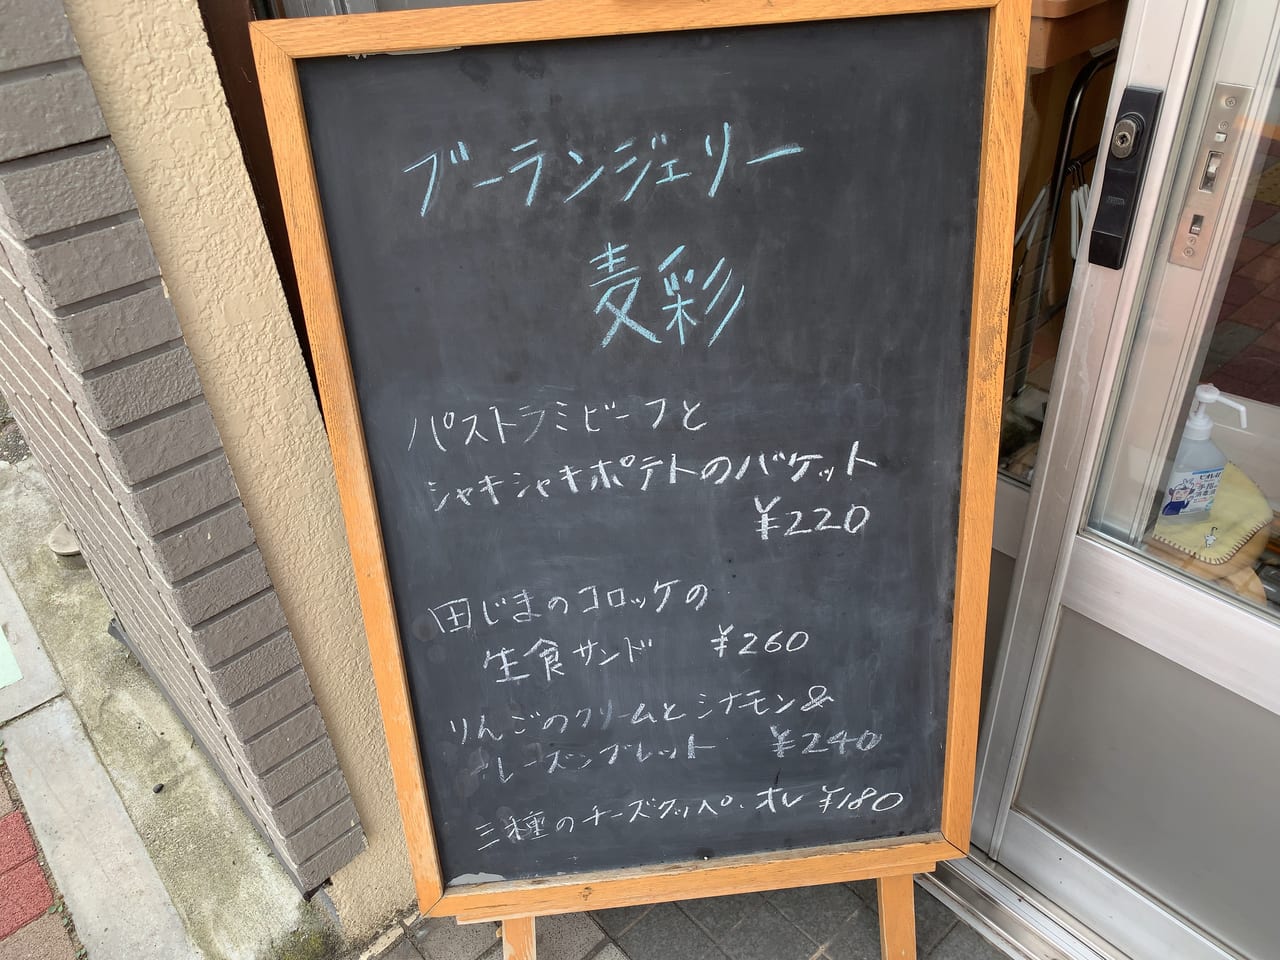 ブーランジェリー
麦彩
パストラミビーフと
シャキシャキポテトのバケット
¥220
田じまのコロッケの
生食サンド ¥260
りんごのクリームとシナモン&
レーズンブレット ¥240
三種のチーズクッペ・オレ ¥180
ビオレu
手指の
消毒液